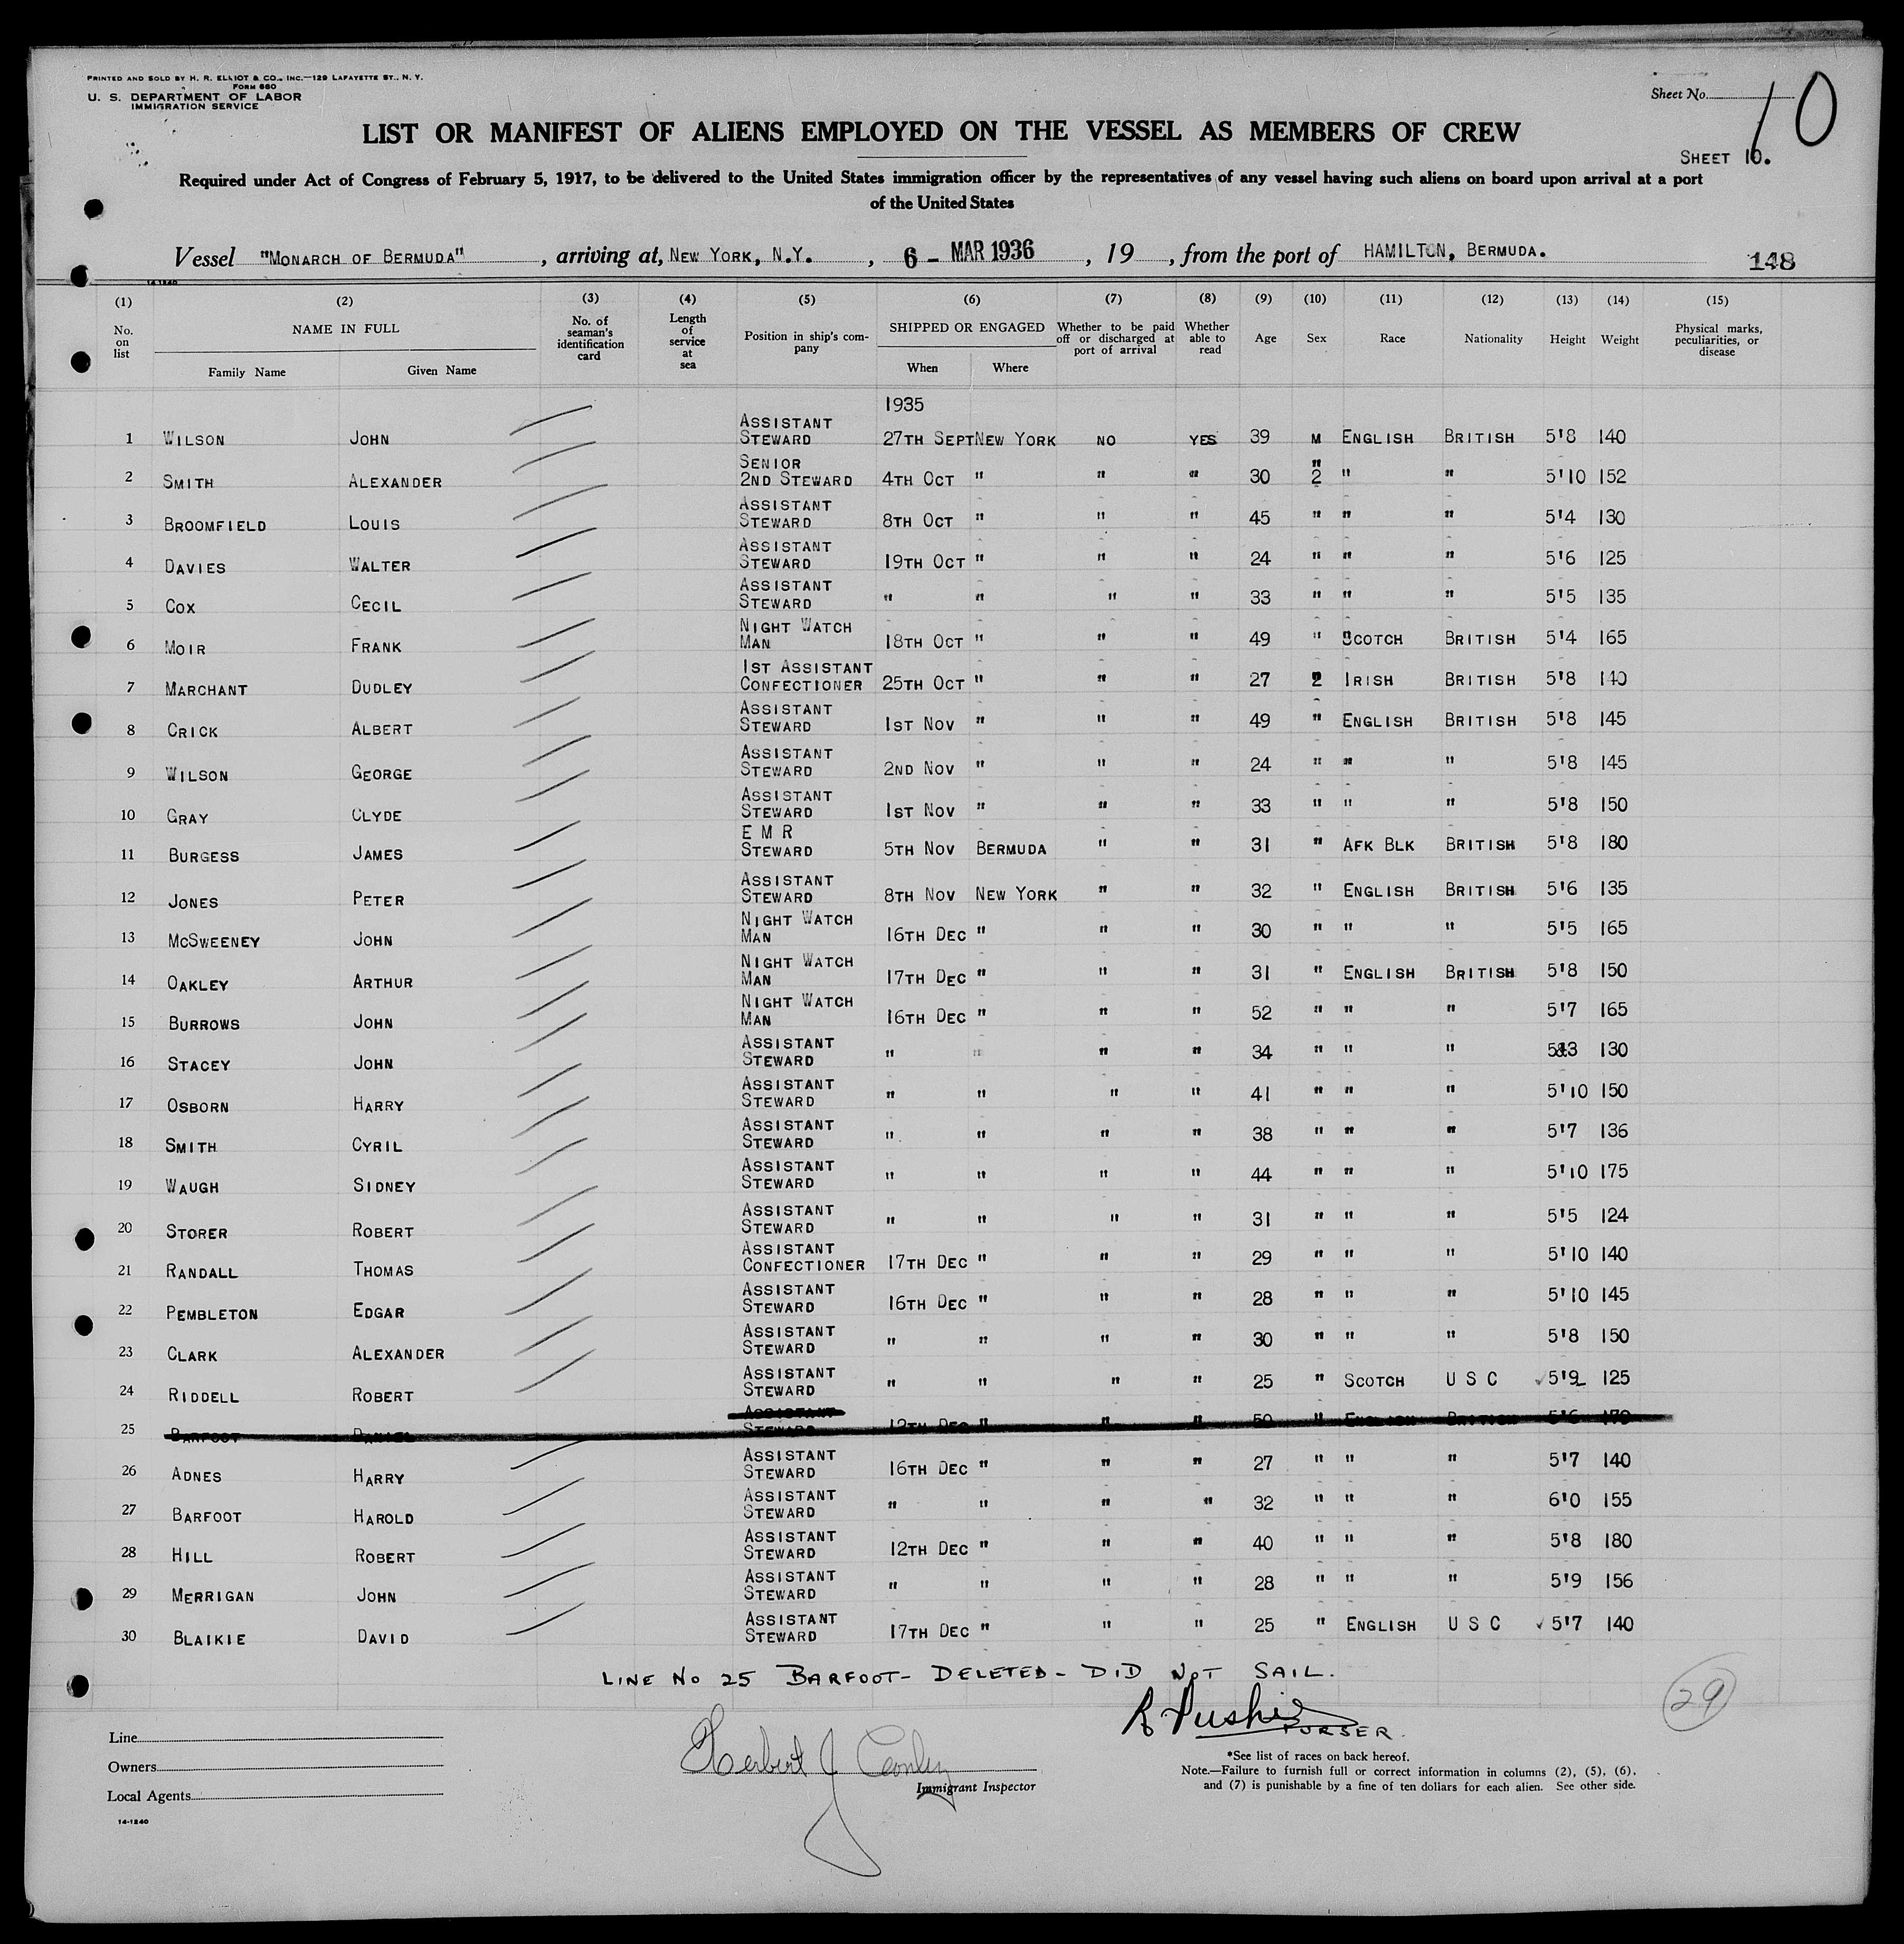 PRINTED AND SOLD BY H. R. ELLIOT & CO., INC.—129 LAFAYETTE ST., N. Y.
FORM 680
U. S. DEPARTMENT OF LABOR
IMMIGRATION SERVICE
Sheet No. 10
LIST OR MANIFEST OF ALIENS EMPLOYED ON THE VESSEL AS MEMBERS OF CREW
SHEET 10.
Required under Act of Congress of February 5, 1917, to be delivered to the United States immigration officer by the representatives of any vessel having such aliens on board upon arrival at a port
of the United States
Vessel "MONARCH OF BERMUDA", arriving at, NEW YORK, N.Y., 6 - MAR 1936, 19, from the port of HAMILTON, BERMUDA. 148
14-1240
(1) (2) (3) (4) (5) (6) (7) (8) (9) (10) (11) (12) (13) (14) (15)
No. on list NAME IN FULL Family Name Given Name No. of seaman's identification card Length of service at sea Position in ship's company SHIPPED OR ENGAGED When Where Whether to be paid off or discharged at port of arrival Whether able to read Age Sex Race Nationality Height Weight Physical marks, peculiarities, or disease
1935
1 WILSON JOHN ASSISTANT STEWARD 27TH SEPT NEW YORK NO YES 39 M ENGLISH BRITISH 5'8 140
2 SMITH ALEXANDER SENIOR 2ND STEWARD 4TH OCT " " " 30 " 2 " " 5'10 152
3 BROOMFIELD LOUIS ASSISTANT STEWARD 8TH OCT " " " 45 " " " 5'4 130
4 DAVIES WALTER ASSISTANT STEWARD 19TH OCT " " " 24 " " " 5'6 125
5 COX CECIL ASSISTANT STEWARD " " " " 33 " " " 5'5 135
6 MOIR FRANK NIGHT WATCH MAN 18TH OCT " " " 49 " SCOTCH BRITISH 5'4 165
7 MARCHANT DUDLEY 1ST ASSISTANT CONFECTIONER 25TH OCT " " " 27 2 IRISH BRITISH 5'8 140
8 CRICK ALBERT ASSISTANT STEWARD 1ST NOV " " " 49 " ENGLISH BRITISH 5'8 145
9 WILSON GEORGE ASSISTANT STEWARD 2ND NOV " " " 24 " " " 5'8 145
10 GRAY CLYDE ASSISTANT STEWARD 1ST NOV " " " 33 " " " 5'8 150
11 BURGESS JAMES E M R STEWARD 5TH NOV BERMUDA " " 31 " AFK BLK BRITISH 5'8 180
12 JONES PETER ASSISTANT STEWARD 8TH NOV NEW YORK " " 32 " ENGLISH BRITISH 5'6 135
13 MCSWEENEY JOHN NIGHT WATCH MAN 16TH DEC " " " 30 " " " 5'5 165
14 OAKLEY ARTHUR NIGHT WATCH MAN 17TH DEC " " " 31 " ENGLISH BRITISH 5'8 150
15 BURROWS JOHN NIGHT WATCH MAN 16TH DEC " " " 52 " " " 5'7 165
16 STACEY JOHN ASSISTANT STEWARD " " " " 34 " " " 5'3 130
17 OSBORN HARRY ASSISTANT STEWARD " " " " 41 " " " 5'10 150
18 SMITH CYRIL ASSISTANT STEWARD " " " " 38 " " " 5'7 136
19 WAUGH SIDNEY ASSISTANT STEWARD " " " " 44 " " " 5'10 175
20 STORER ROBERT ASSISTANT STEWARD " " " " 31 " " " 5'5 124
21 RANDALL THOMAS ASSISTANT CONFECTIONER 17TH DEC " " " 29 " " " 5'10 140
22 PEMBLETON EDGAR ASSISTANT STEWARD 16TH DEC " " " 28 " " " 5'10 145
23 CLARK ALEXANDER ASSISTANT STEWARD " " " " 30 " " " 5'8 150
24 RIDDELL ROBERT ASSISTANT STEWARD " " " " 25 " SCOTCH U S C 5'9 125
25 BARFOOT DANIEL ASSISTANT STEWARD 12TH DEC " " " 50 " ENGLISH BRITISH 5'6 170
26 ADNES HARRY ASSISTANT STEWARD 16TH DEC " " " 27 " " " 5'7 140
27 BARFOOT HAROLD ASSISTANT STEWARD " " " " 32 " " " 6'0 155
28 HILL ROBERT ASSISTANT STEWARD 12TH DEC " " " 40 " " " 5'8 180
29 MERRIGAN JOHN ASSISTANT STEWARD " " " " 28 " " " 5'9 156
30 BLAIKIE DAVID ASSISTANT STEWARD 17TH DEC " " " 25 " ENGLISH U S C 5'7 140
LINE NO 25 BARFOOT - DELETED - DID NOT SAIL.
29
PURSER.
Line
Owners
Local Agents
14-1240
Herbert J Conley
Immigrant Inspector
*See list of races on back hereof.
Note.—Failure to furnish full or correct information in columns (2), (5), (6),
and (7) is punishable by a fine of ten dollars for each alien. See other side.